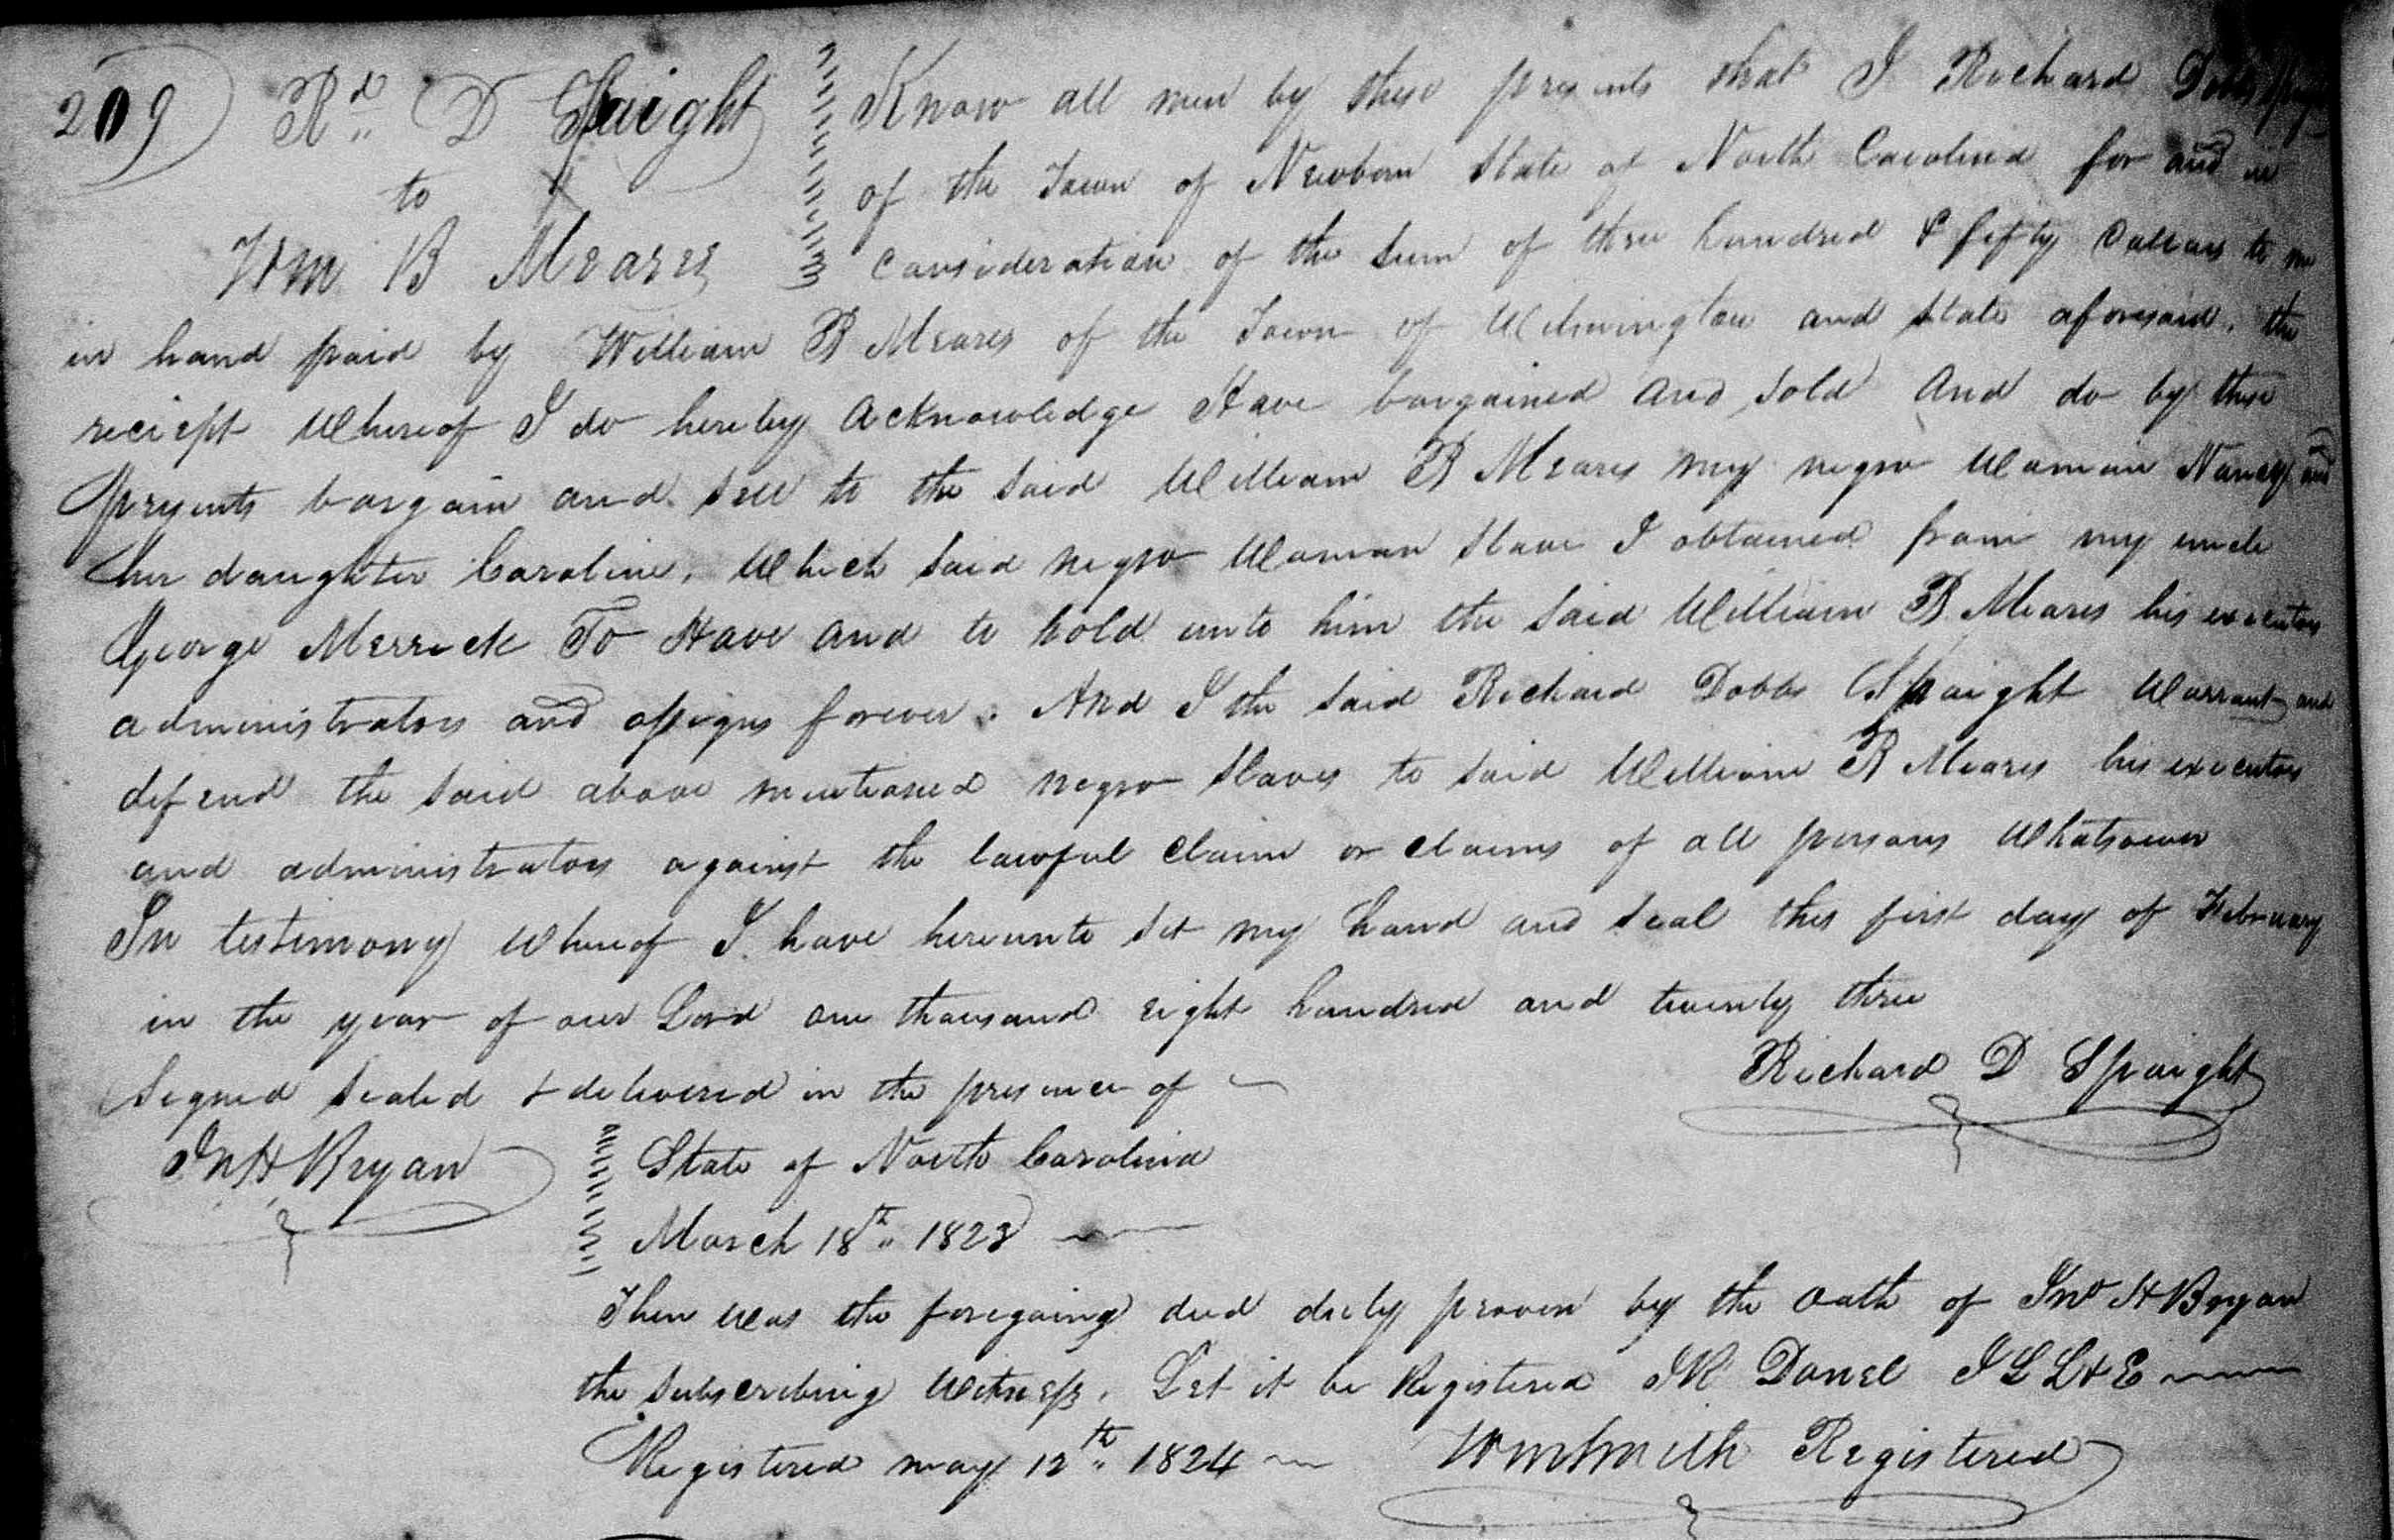 209 Rd. D Spaight
to
Wm B Meares
Know all men by these presents that I Richard Dobbs Spaight
of the Town of Newbern State of North Carolina for and in
consideration of the sum of three hundred & fifty Dollars to me
in hand paid by William B Meares of the Town of Wilmington and State aforesaid, the
reciept whereof I do hereby acknowledge Have bargained and sold and do by these
presents bargain and sell to the said William B Meares my negro woman Nancy and
her daughter Caroline, which said negro woman slave I obtained from my uncle
George Merrick To Have and to hold unto him the said William B Meares his executors
administrators and assigns forever. And I the said Richard Dobbs Spaight warrant and
defend the said above mentioned negro slaves to said William B Meares his executors
and administrators against the lawful claim or claims of all persons whatsoever
In testimony whereof I have hereunto set my hand and seal this first day of February
in the year of our Lord one thousand eight hundred and twenty three
Signed sealed & delivered in the presence of
Richard D Spaight
Jn H Bryan
State of North Carolina
March 18th. 1823
Then was the foregoing deed duly proven by the oath of Jno H Bryan
the subscribing witness. Let it be Registered JR Donel J S L & E
Registered may 12th. 1824 Wm Smith Registered